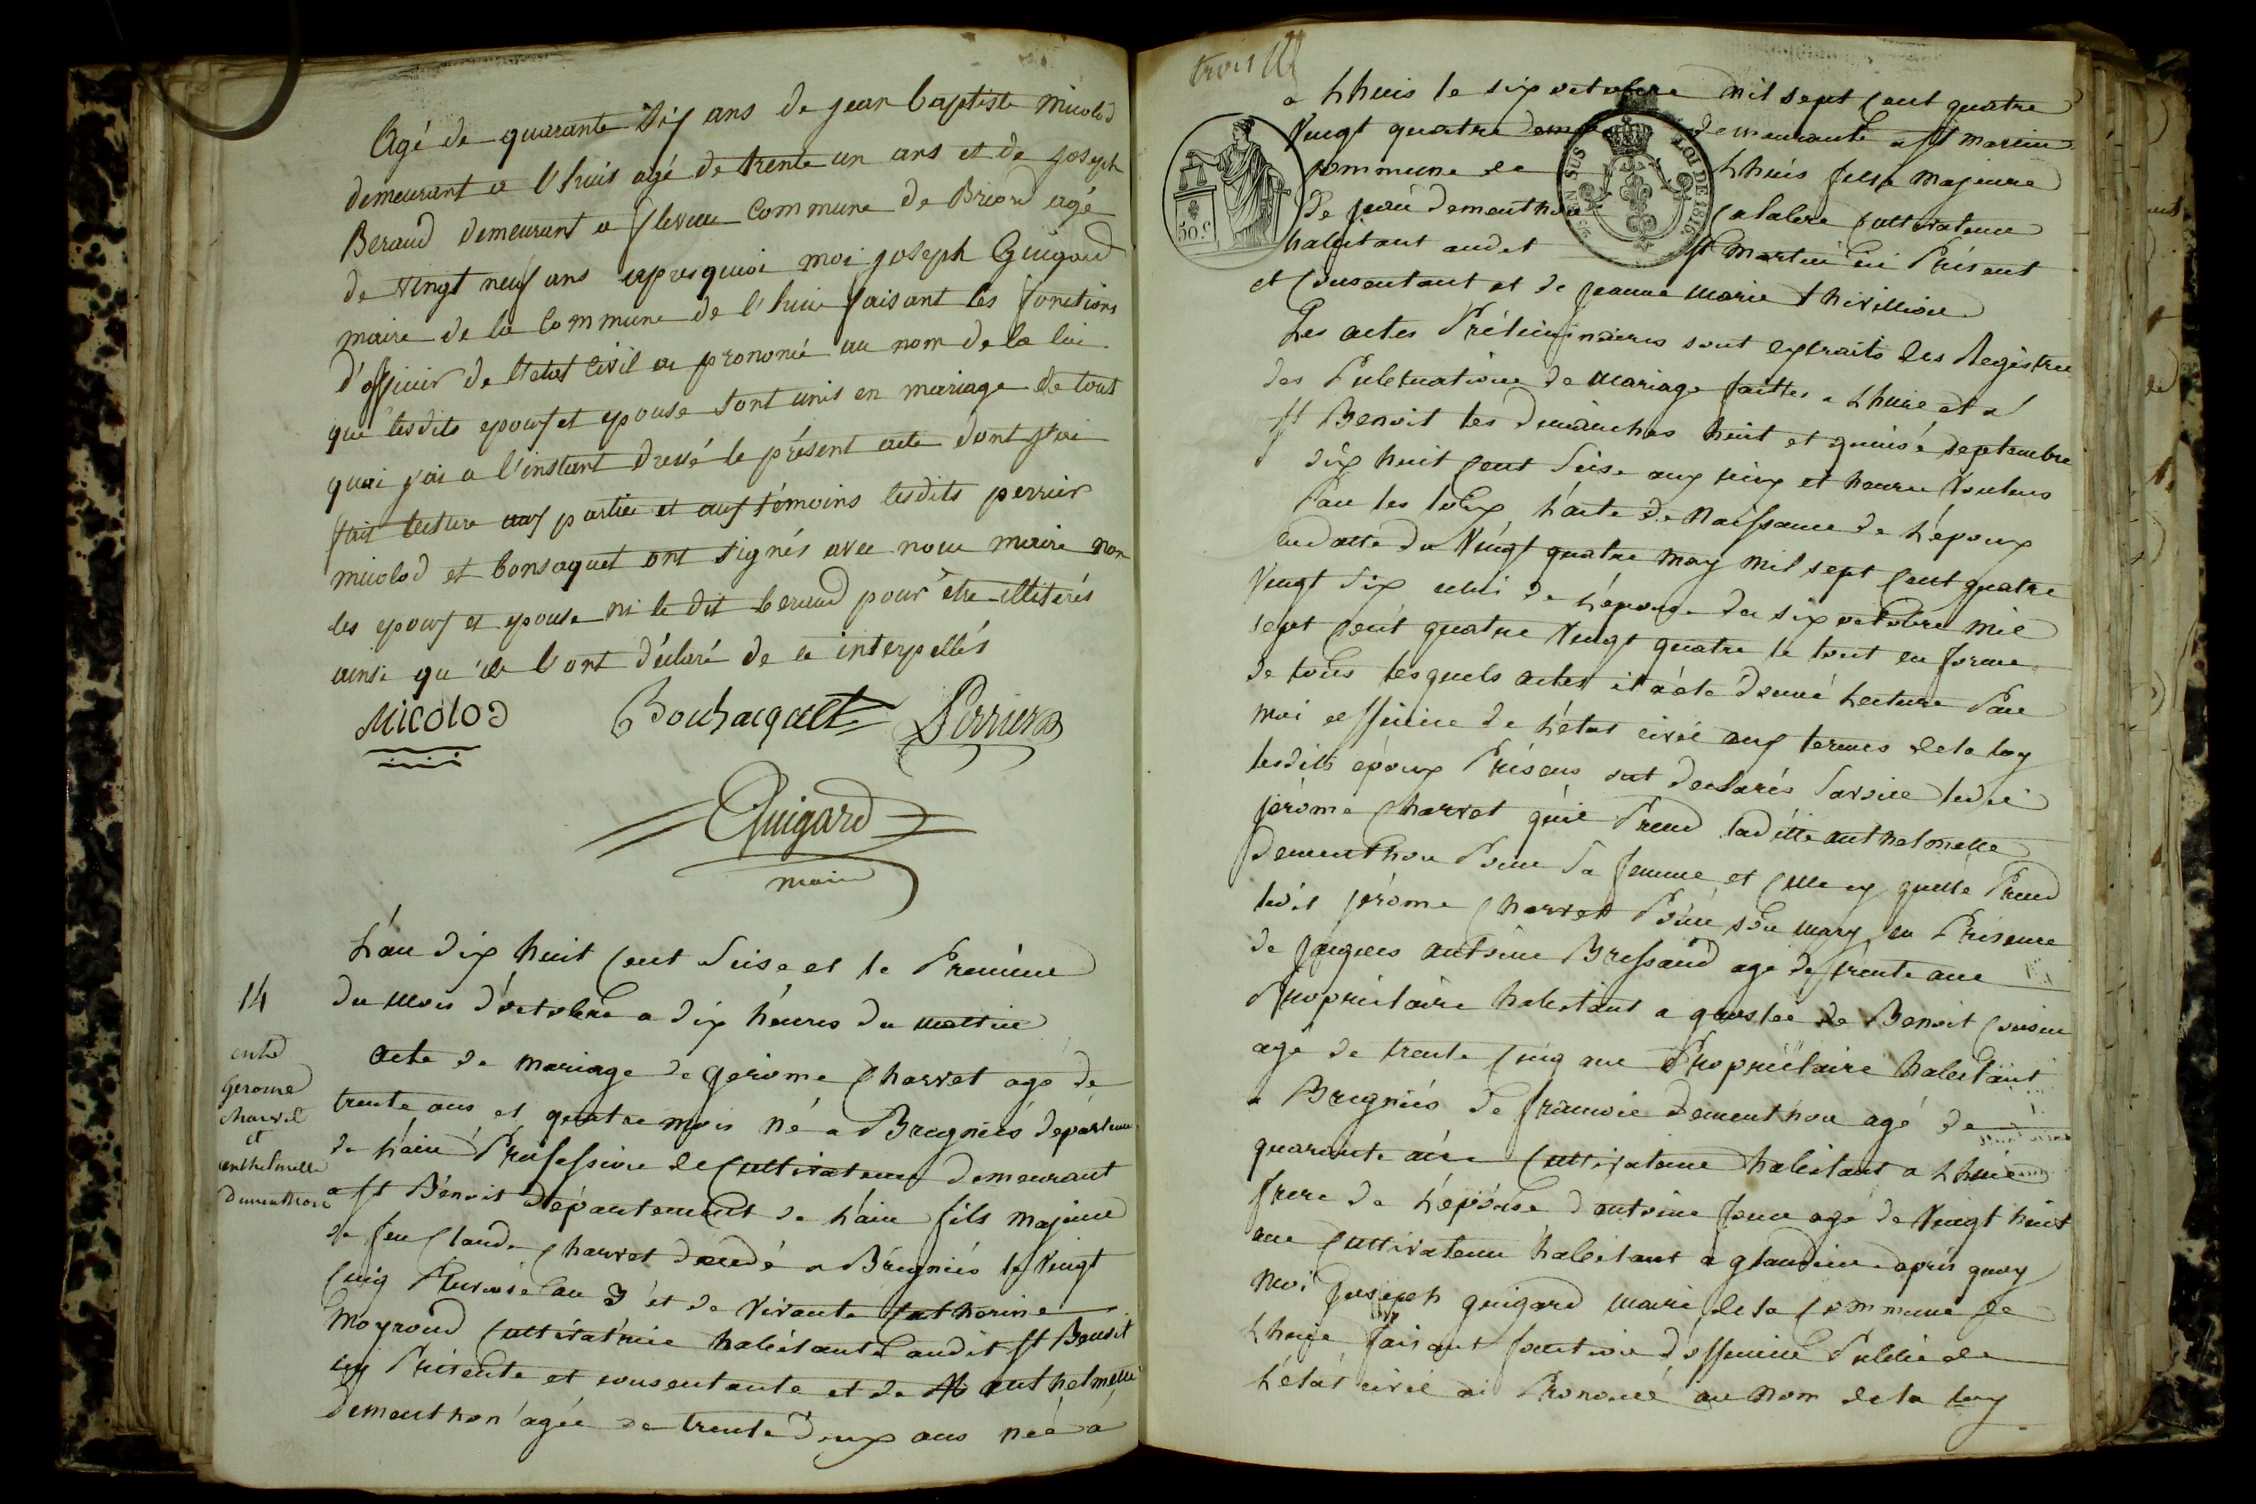 Agé de quarante six ans de jean baptiste micolod
demeurant a l'huis agé de trente un ans et de joseph
Beraud demeurant a fleviau Commune de Briord agé
de vingt neuf ans apres quoi moi joseph Guigard
maire de la Commune de l'huis faisant les fonctions
d'officier de l'etat civil ai prononcé au nom de la loi
que lesdits epoux et epouse sont unis en mariage de tout
quoi j'ai a l'instant dressé le présent acte dont j'ai
fait lecture aux parties et aux témoins lesdits perrier
micolod et bonsaquet ont signés avec nous maire non
les epoux et epouse ni le dit beraud pour être illiterés
ainsi qu'ils l'ont déclaré de ce interpellés
MICOLOD Perrier
Guigard
maire
L'an dix huit Cent Seise et le Premier
du mois d'octobre a dix héures du mattin
14
entre
Gerome
charvet
et
anthelmelle
Dementhon
acte de mariage de gerome Charvet agé de
trente ans et quatre mois né a Bregniés départem
de l'ain Professiion de Cultivateur demeurant
a St Bénoit Département de l'ain fils majeur
de feu Claude Charvet décédé a Brégniés le Vingt
Cinq Pluviose an 3 et de vivante Catherine
Moyroud Cultivatrice habitante audit St Benoit
icy Présente et consentante et de anthelmelle
dementhon agée de trente Deux ans née a
trois
a Lhuis le six octobre mil sept Cent quatre
Vingt quatre demeurante a St martin
Commune de Lhuis fille majeure
de dementhon Cultivateur
habitant audit St Martin ici Présent
et Consentant et de jeanne marie thivillion
50 c.
EN SUS
LOI DE 1816
Les actes Préliminaires sont extraits des Registre
des Publications de mariage faittes a Lhuis et a
St Benoit les dimanches huit et quinsé septembre
dix huit Cent Seise aux lieux et heures Voulues
Par les loix L'acte de Naissance de L'époux
en datte du Vingt quatre may mil sept Cent quatre
Vingt Six celui de L'épouse du six octobre mil
sept Cent quatre Vingt quatre le tout en forme
de tous lesquels actes il a été donné Lecture Par
moi officier de L'état civil aux termes de la loy
lesdits époux Présens ont declarés Savoir ledit
jérome Charvet qu'il Prend laditte anthelmelle
Dementhon Pour Sa femme et Celle cy qu'elle Prend
ledit jérome Charvet Pour son mary en Présence
de jaques antoine Bressand age de trente ans
Propriétaire habitant a de Benoit Cousin
age de trente Cinq ans Propriétaire habitant
a Bregniés de francois dementhon agé de
quarante ans Cultivateur habitant a Lhuis
frere de L'épouse d antoine age de Vingt huit
ans Cultivateur habitant a glandieu après quoy
Moi Joseph guigard maire de la Commune de
Lhuis faisant fonction d'officier Public de
L'état civil ai Prononcé au nom de la loy